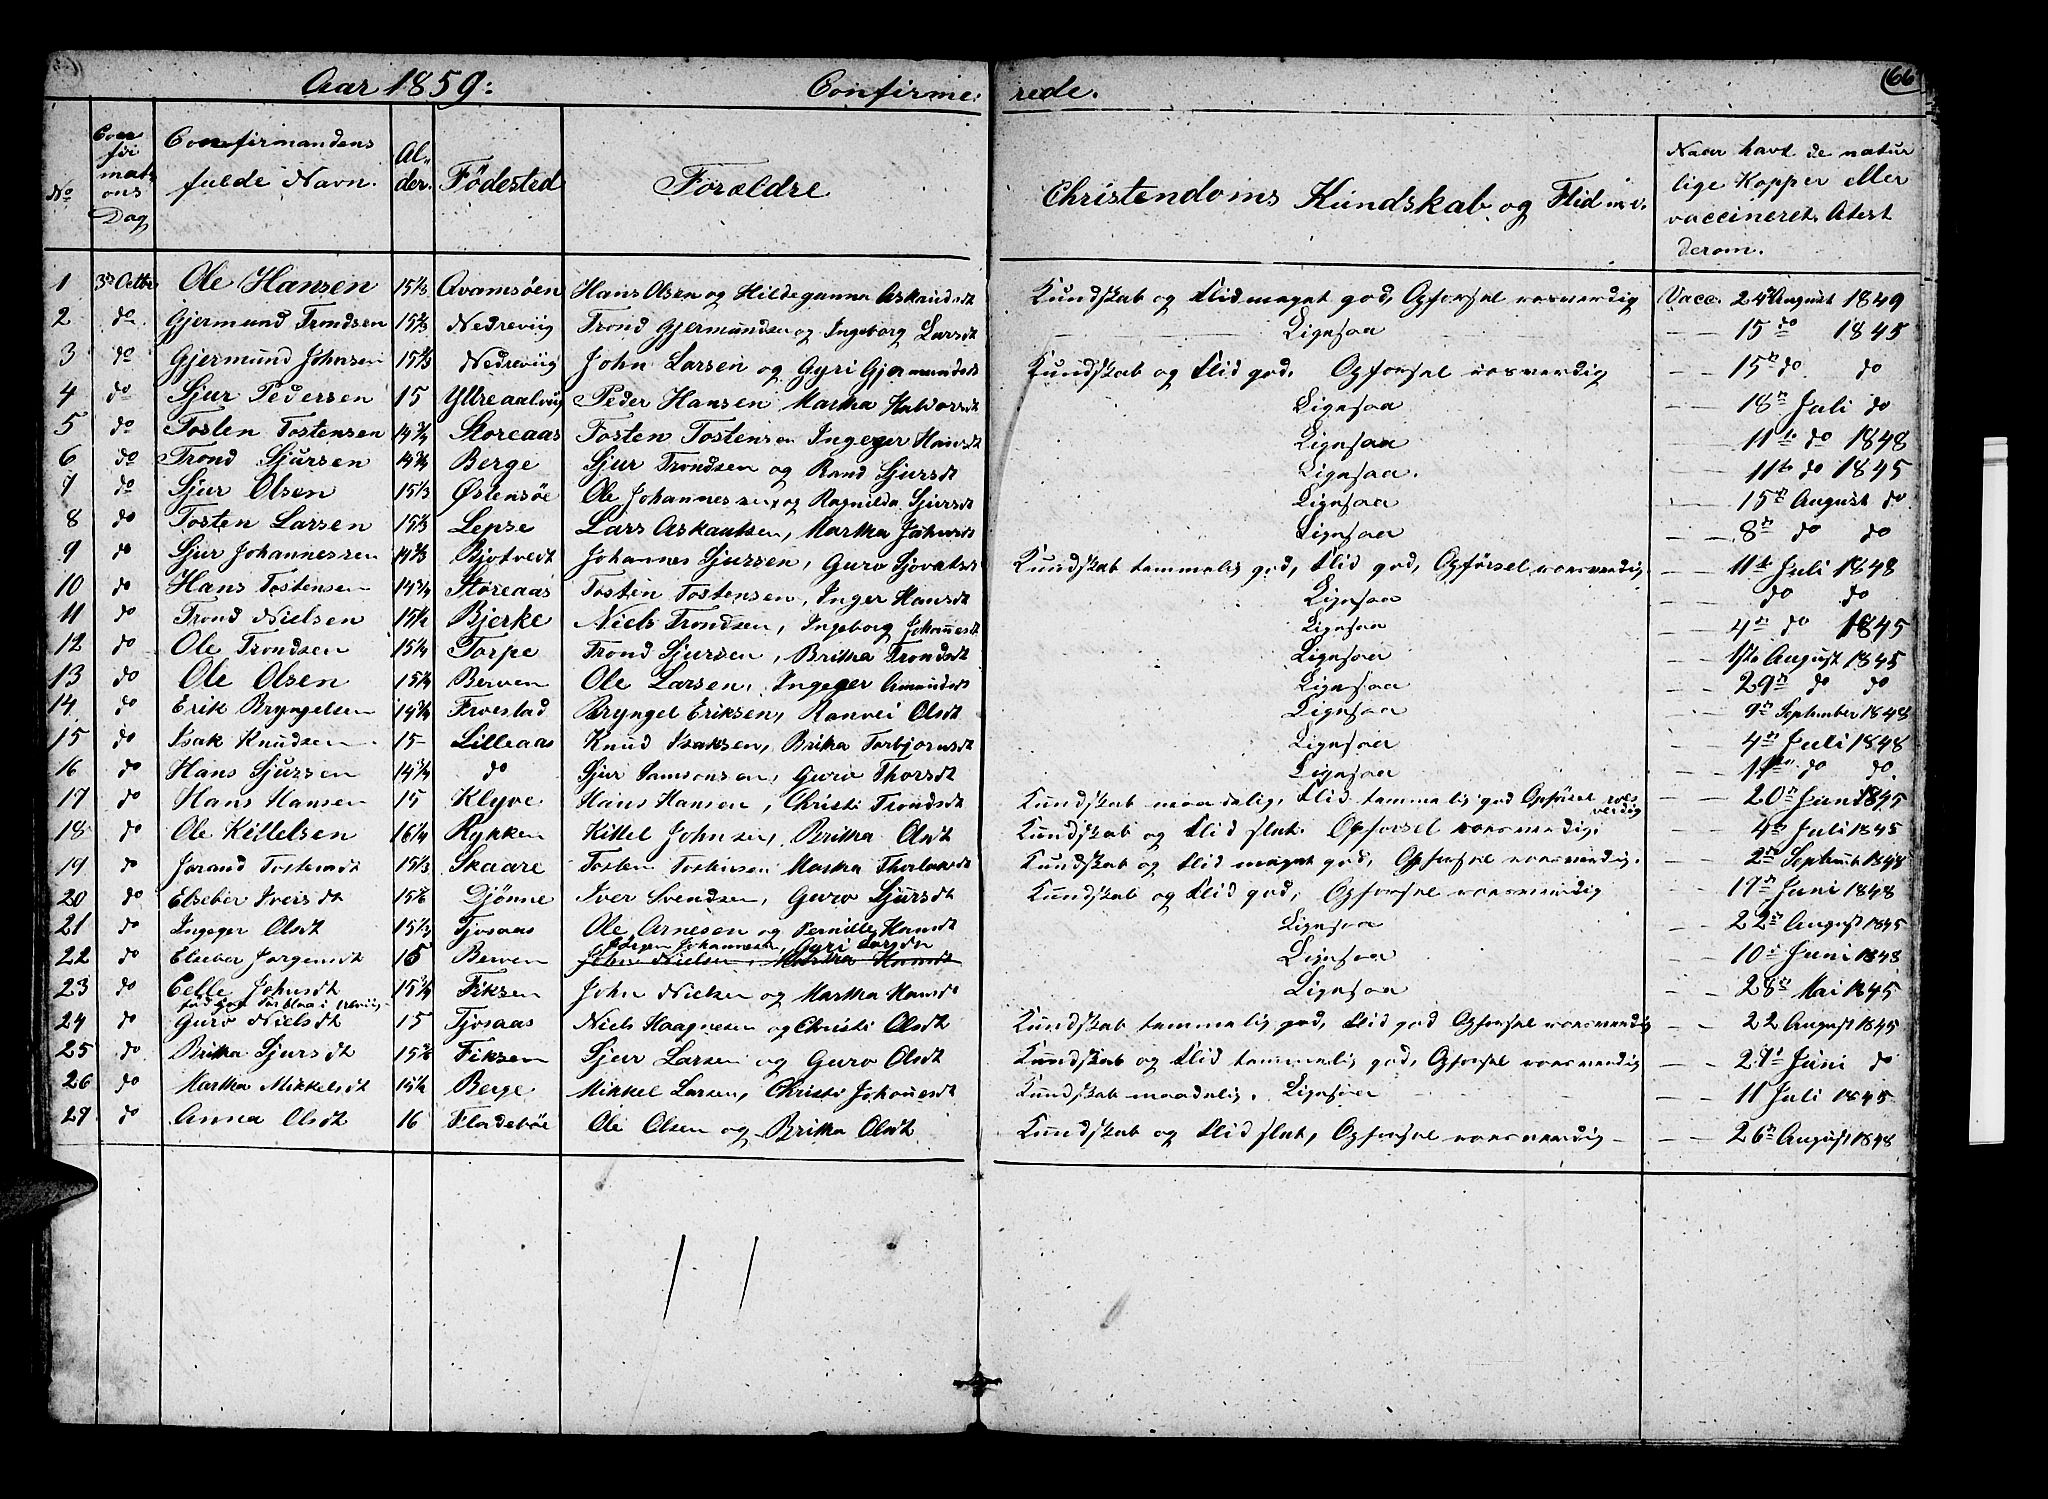 66
Aar 1859: Confirmerede.
No Confirmations Dag Confirmandens fulde Navn. Alder. Födested Forældre Christendoms Kundskab og Flid m. v. Naar havt de naturlige Kopper eller vaccineret, Atest derom.
1 3die Octbr Ole Hansen 15 1/3 Qvamsöen Hans Olsen og Hildegunna Askaudsdt Kundskab og Flid meget god, Opforsel rosverdig Vacc. 24de August 1849
2 do Gjermund Trondsen 15 2/3 Nedreviig Trond Gjermundsen og Ingeborg Larsdt Lignsaa — — 15 do 1845
3 do Gjermund Johnsen 15 2/3 Nedreviig John Larsen og Gyri Gjermundsdt Kundskab og Flid god. Opforsel rosverdig — — 15de do do
4 do Sjur Pedersen 15 Ytreaalvig Peder Hansen Martha Haldorsdt Lignsaa — — 18de Juli do
5 do Tosten Tostensen 14 3/4 Storeaas Tosten Tostensen Ingeger Hansdt Lignsaa — — 11te do 1848
6 do Trond Sjursen 14 3/4 Berge Sjur Trondsen og Rand Sjursdt Lignsaa. — — 11te do 1845
7 do Sjur Olsen 15 1/3 Østensöe Ole Johannessen, og Ragnilda Sjursdt Lignsaa — — 15de August do
8 do Tosten Larsen 15 2/3 Lepse Lars Askautsen, Martha Johnsdt Lignsaa — — 8de do do
9 do Sjur Johannessen 14 2/3 Bjotvedt Johannes Sjursen, Guro Sjovatsdt Kundskab temmelig god, Flid god, Opförsel rosverdig — — 11te Juli 1848
10 do Hans Tostensen 14 3/4 Storeaas Tosten Tostensen, Inger Hansdt Lignsaa — — do do
11 do Trond Nielsen 15 1/2 Bjerke Niels Trondsen, Ingeborg Johannesdt Lignsaa — — 4de do 1845
12 do Ole Trondsen 15 1/4 Torpe Trond Sjursen, Britha Trondsdt Lignsaa — — 1ste August 1845
13 do Ole Olsen 15 1/4 Berven Ole Larsen, Ingeger Amundsdt Lignsaa — — 29de do do
14 do Erik Bryngelsen 14 3/4 Froestad Bryngel Eriksen, Ranvei Olsdt Lignsaa — — 9de September 1848
15 do Isak Knudsen 15 — Lilleaas Knud Isaksen, Britha Torbjornsdt Lignsaa — — 4de Juli 1848
16 do Hans Sjursen 14 3/4 do Sjur Samsonsen, Guro Thorsdt Lignsaa — — 11te do do
17 do Hans Hansen 15 Klyve Hans Hansen, Christi Trondsdt Kundskab maadelig, Flid temmelig god Opförsel rosverdig — — 20de Juni 1845
18 do Ole Kittelsen 16 1/4 Rykken Kittel Johnsen, Britha Olsdt Kundskab og Flid slet. Opforsel rosverdig. — — 4de Juli 1845
19 do Jorand Tostensdt 15 1/3 Skaare Tosten Tostensen Martha Thorlaksdt Kundskab og Flid meget god, Opforsel rosverdig. — — 2den Septemb 1848
20 do Elseber Iversdt 15 1/6 Djönne Iver Svendsen, Guro Sjursdt Kundskab og Flid god, Opforsel rosverdig — — 17de Juni 1848
21 do Ingeger Olsdt 15 1/3 Tjosaas Ole Arnesen og Pernille Hansdt Lignsaa — — 22de August 1845
22 do Elseber Jorgensdt 15 Berven Jorgen Johannesen, Gyri Larsdtr Lignsaa — — 10de Juni 1848
John Nielsen, Martha Hansdt
23 do Celle Johnsdt 15 1/4 Fiksen John Nielsen og Martha Hansdt Lignsaa — — 28de Mai 1845
24 do Guro Nielsdt 15 Tjosaas Niels Haagnesen og Christi Olsdt Kundskab temmelig god, Flid god Opforsel rosverdig — — 22 August 1845
25 do Britha Sjursdt 15 5/6 Fiksen Sjur Larsen og Guro Olsdt Kundskab og Flid temmelig god, Opforsel rosverdig — — 27de Juni do
26 do Martha Mikkelsdt 15 1/2 Berge Mikkel Larsen, Christi Johannesdt Kundskab maadelig. Lignsaa — — 11 Juli 1845
27 do Anna Olsdt 16 Fladeböe Ole Olsen og Britha Olsdt Kundskab og Flid slet, Opforsel rosverdig — — — 26de August 1848